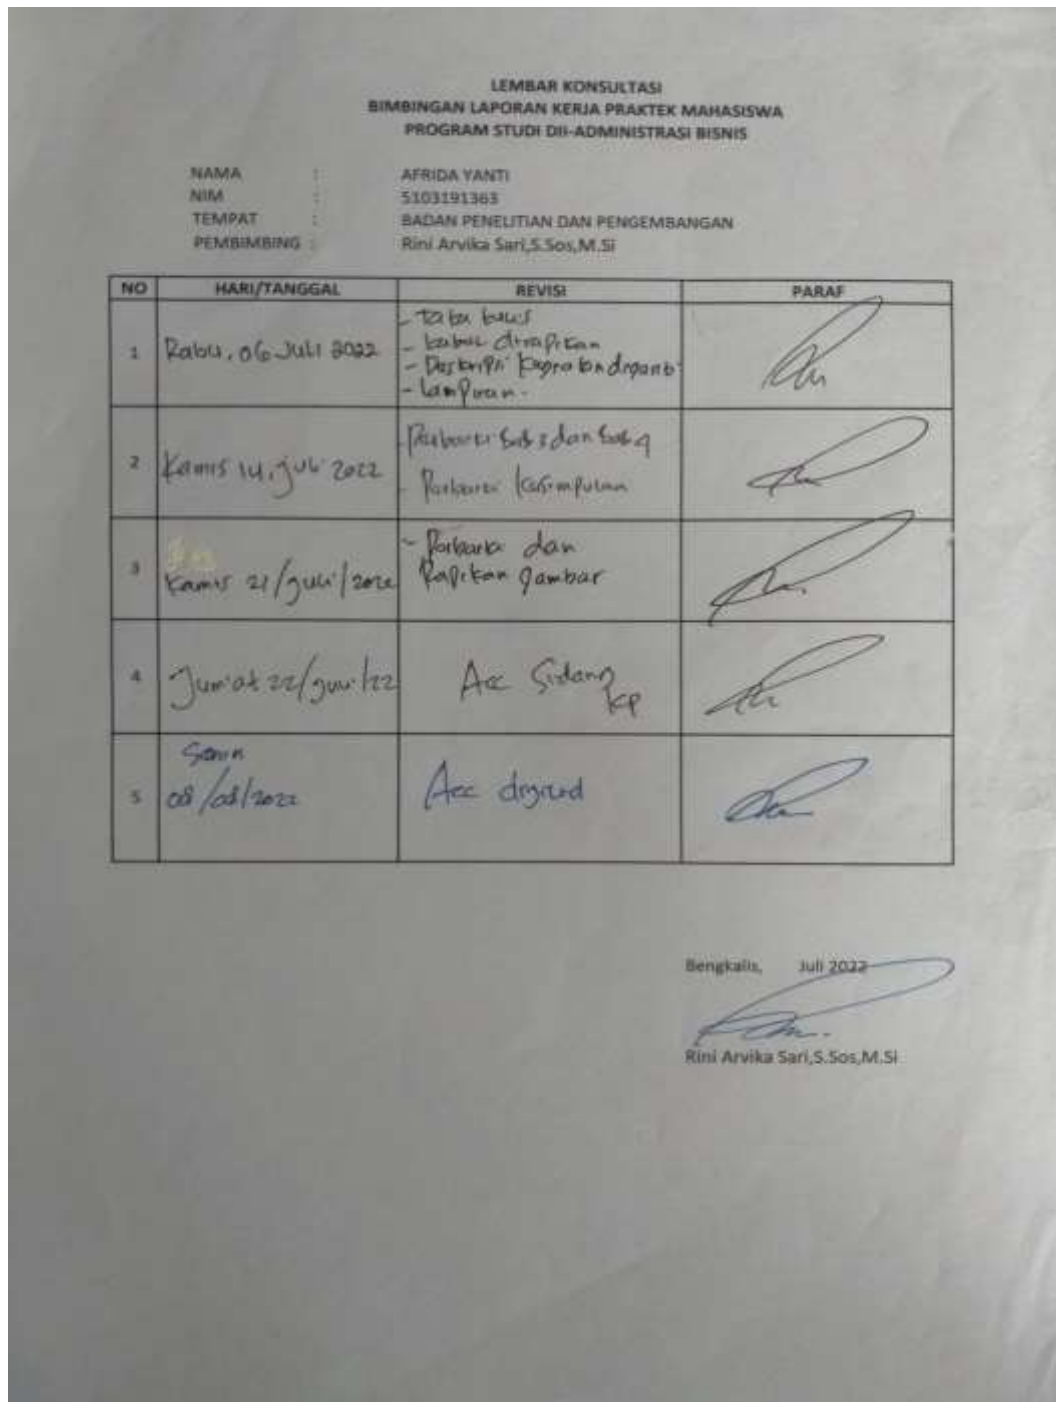 LEMBAR KONSULTASI
BIMBINGAN LAPORAN KERJA PRAKTEK MAHASISWA
PROGRAM STUDI DIII-ADMINISTRASI BISNIS
NAMA : AFRIDA YANTI
NIM : 5103191363
TEMPAT : BADAN PENELITIAN DAN PENGEMBANGAN
PEMBIMBING : Rini Arvika Sari,S.Sos,M.Si
NO HARI/TANGGAL REVISI PARAF
1 Rabu, 06 Juli 2022
- tata tulis
- tabel dirapikan
- Deskripsi
- Lampiran.
2 Kamis 14, juli 2022
- Perbaiki bab 3 dan bab 4
- Perbaiki kesimpulan
3 Kamis 21/juli/2022
- Perbaiki dan
Rapikan gambar
4 Jum'at 22/juli/22
Acc Sidang
KP
5 Senin
08/08/2022
Acc
Bengkalis, Juli 2022
Rini Arvika Sari,S.Sos,M.Si